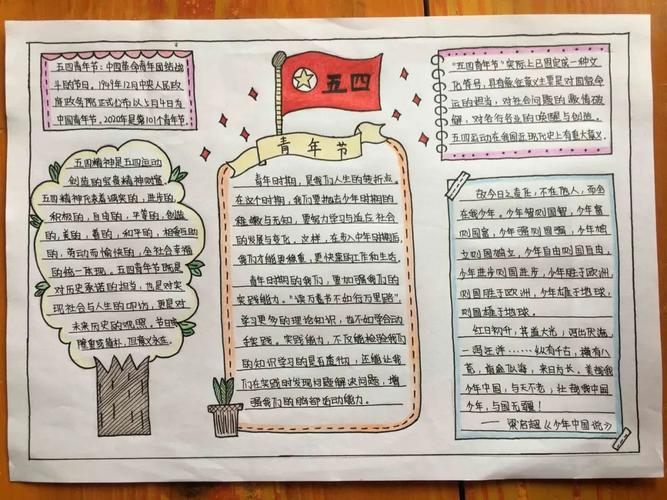 五四青年节：中国革命青年团结战
斗的节日。1949年12月中央人民政
府政务院正式公布以5月4日为
中国青年节。2020年是第101个青年节。
五四
青年节
"五四青年节"实际上已固定成一种文
化符号，具有象征意义主要是对国家命
运的担当，对社会问题的激情破
解，对各行各业的唤醒与创造。
五四运动在我国近现代史上有重大意义。
五四精神是五四运动
创造的宝贵精神财富。
五四精神代表着诚实的，进步的，
积极的，自由的，平等的，创造
的，美的，善的，和平的，相爱互助
的，劳动而愉快的，全社会幸福
的统一体现。五四青年节既是
对历史承诺的担当，也是对实
现社会与人生的叩访，更是对
未来历史的观照。节日虽
隆重或简朴，但意义永在。
青年时期，是我们人生的转折点。
在这个时期，我们要抛去少年时期的
稚嫩与无知，更努力学习与追忘社会
的发展与变化，这样，在步入中年时期后，
我们才能更稳重，更快乐的工作和生活。
青年时期的我们，要加强我们的
实践能力。"读万卷书不如行万里路"，
学习更多的理论知识，也不如学会动
手实践。实践能力，不仅能检验我们
的知识学习的是否透彻，还能让我
们在实践时发现问题解决问题，增
强我们的脑部活动能力。
故今日之责任，不在他人，而全
在我少年。少年智则国智，少年富
则国富，少年强则国强，少年独
立则国独立，少年自由则国自由，
少年进步则国进步，少年胜于欧洲，
则国胜于欧洲，少年雄于地球，
则国雄于地球。
红日初升，其道大光；河出伏流，
一泻汪洋……纵有千古，横有八
荒，前途似海，来日方长，美哉我
少年中国，与天不老；壮哉我中国
少年，与国无疆！
——梁启超《少年中国说》